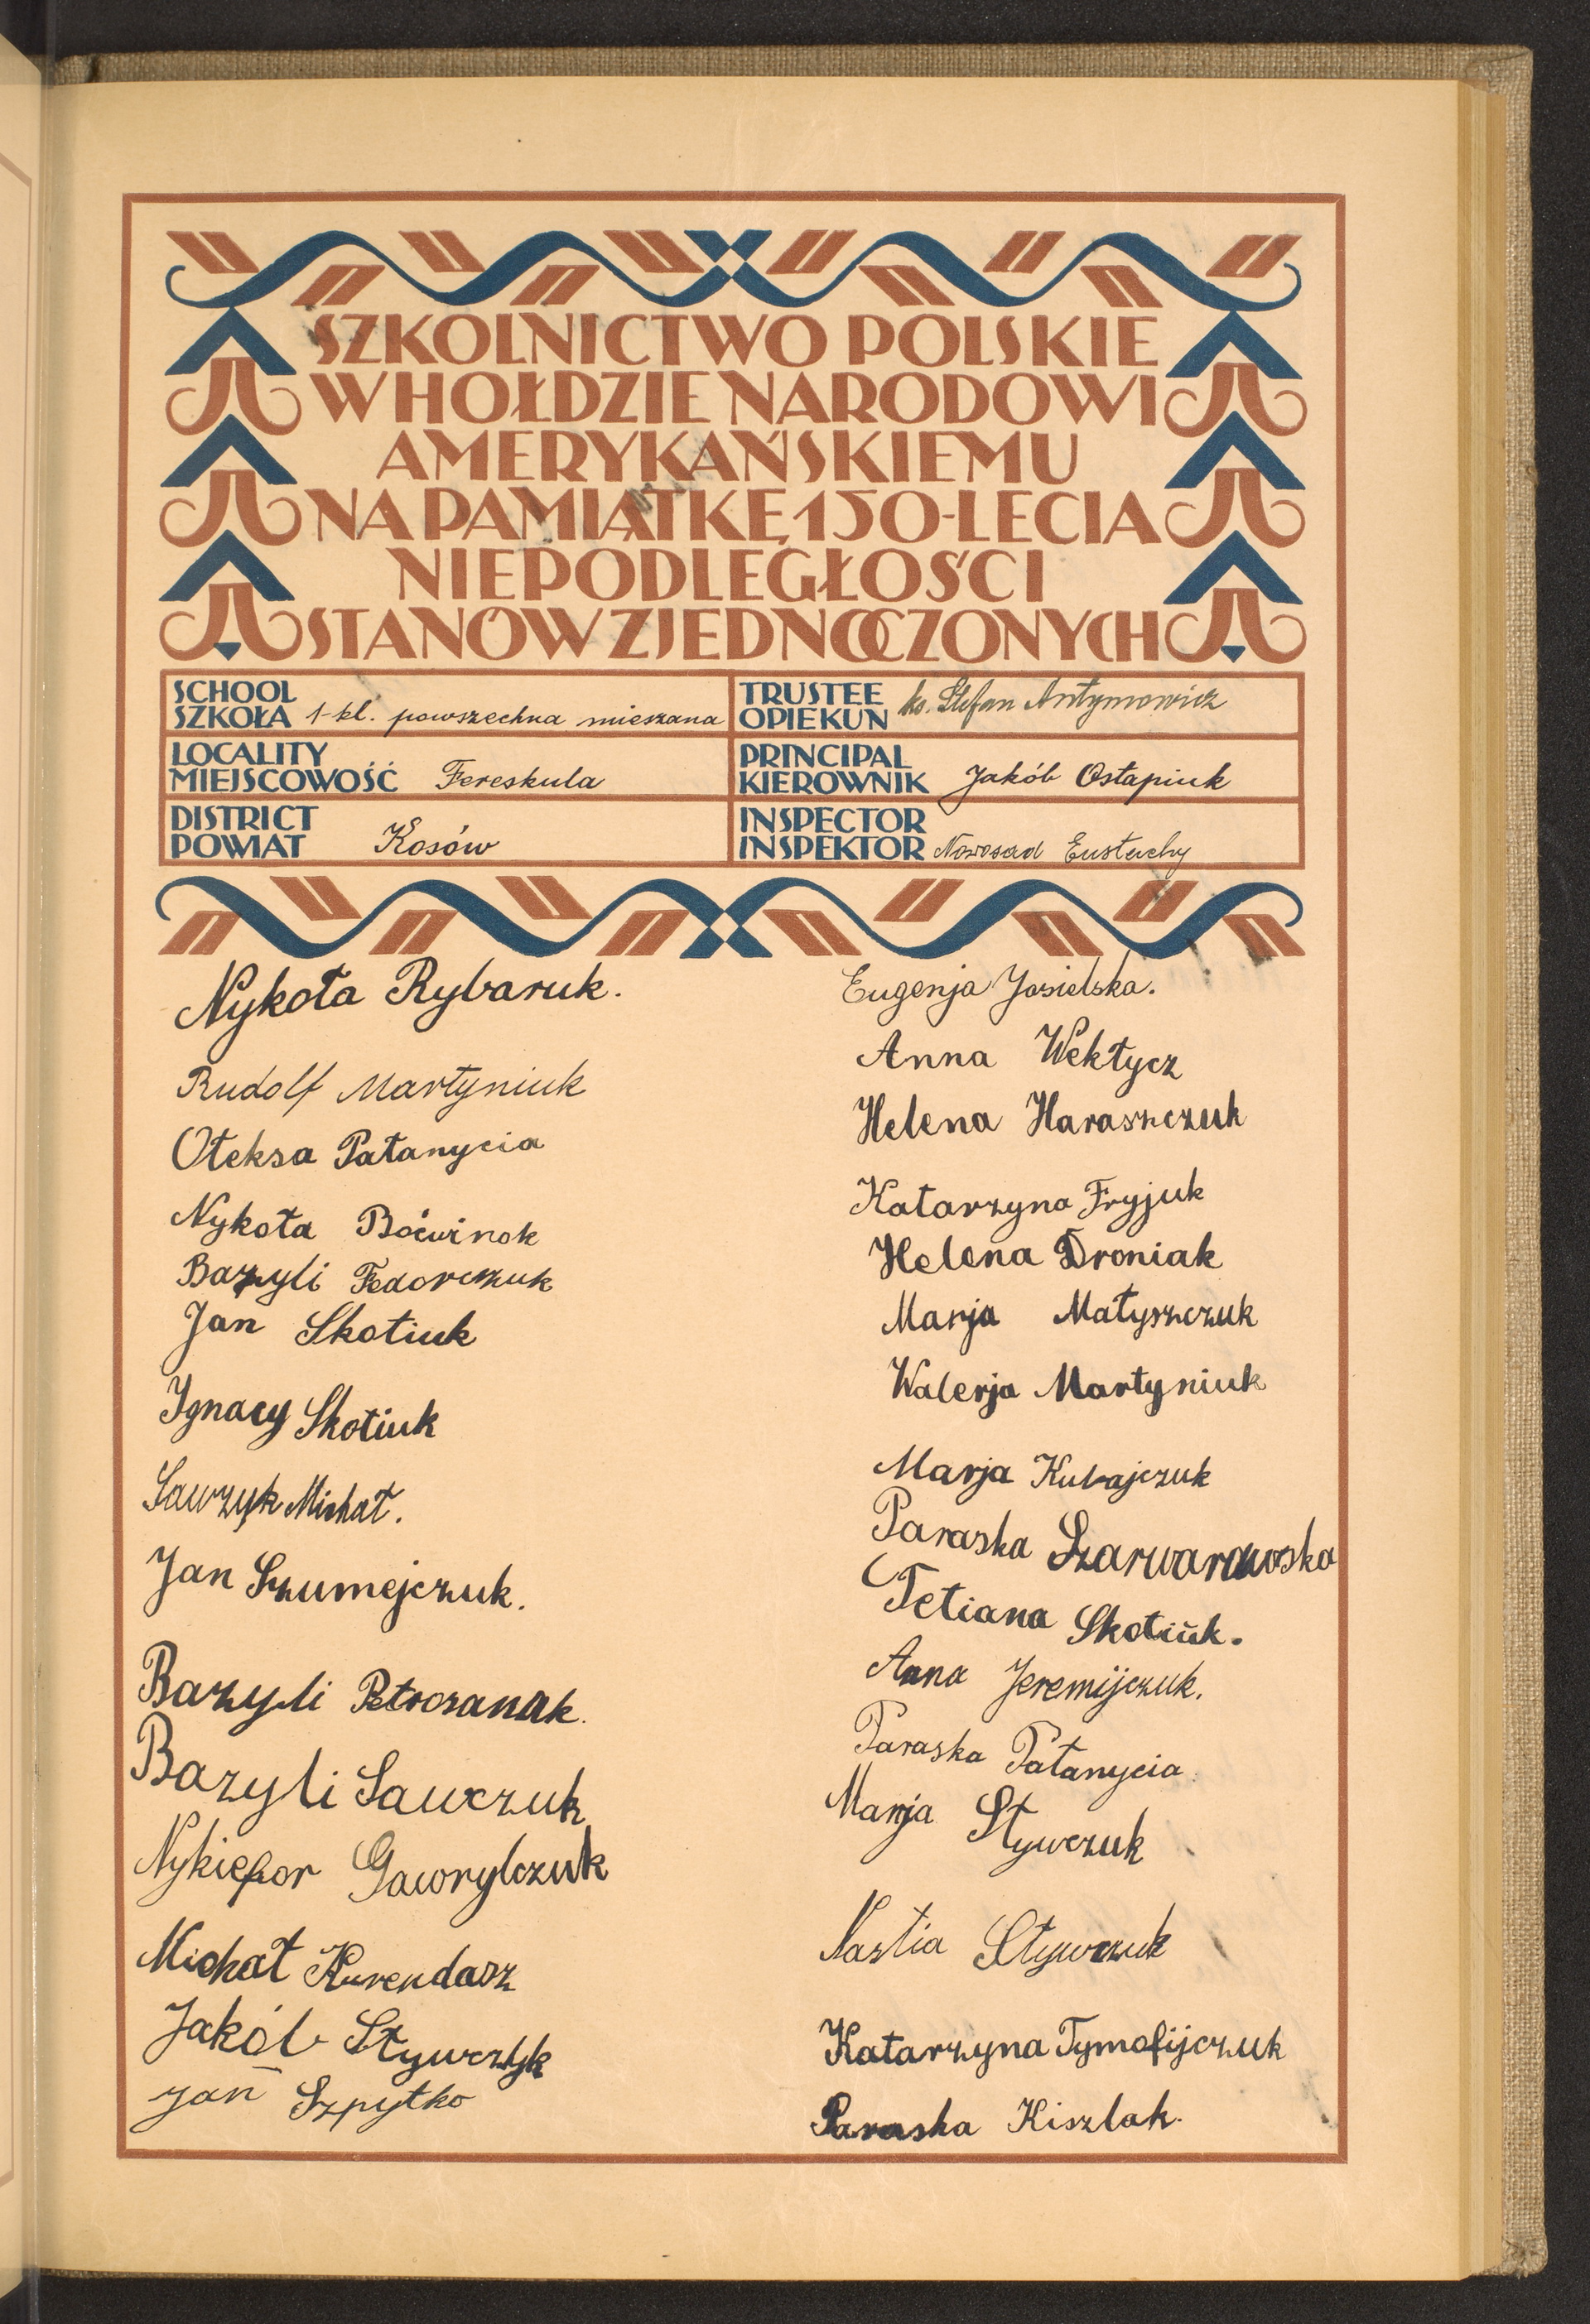 SZKOLNICTWO POLSKIE
W HOŁDZIE NARODOWI
AMERYKAŃSKIEMU
NA PAMIĄTKĘ 150-LECIA
NIEPODLEGŁOŚCI
STANÓW ZJEDNOCZONYCH
SCHOOL
SZKOŁA 1-kl. powszechna mieszana
TRUSTEE
OPIEKUN ks. Stefan Antymowicz
LOCALITY
MIEJSCOWOŚĆ Fereskula
PRINCIPAL
KIEROWNIK Jakób Ostapiuk
DISTRICT
POWIAT Kosów
INSPECTOR
INSPEKTOR Nowosad Eustachy
Nykoła Rybaruk.
Rudolf Martyniuk
Ołeksa Pałanycia
Nykoła Boćwinok
Bazyli Fedorczuk
Jan Skotiuk
Ignacy Skotiuk
Sawzyk Michał.
Jan Szumejczuk.
Bazyli Petrosanak.
Bazyli Sawczuk
Nykiefor Gawrylczuk
Michał Kurendasz
Jakób Stywczyk
Jan Szpytko
Eugenja Jasielska.
Anna Wektycz
Helena Haraszczuk
Katarzyna Fryjuk
Helena Droniak
Marja Matyszczuk
Walerja Martyniuk
Marja Kubajczuk
Paraska Szarwarowska
Tetiana Skotiuk.
Anna Jeremijczuk.
Paraska Pałanycia
Marja Stywczuk
Nastia Stywczuk
Katarzyna Tymofijczuk
Paraska Kiszlak.